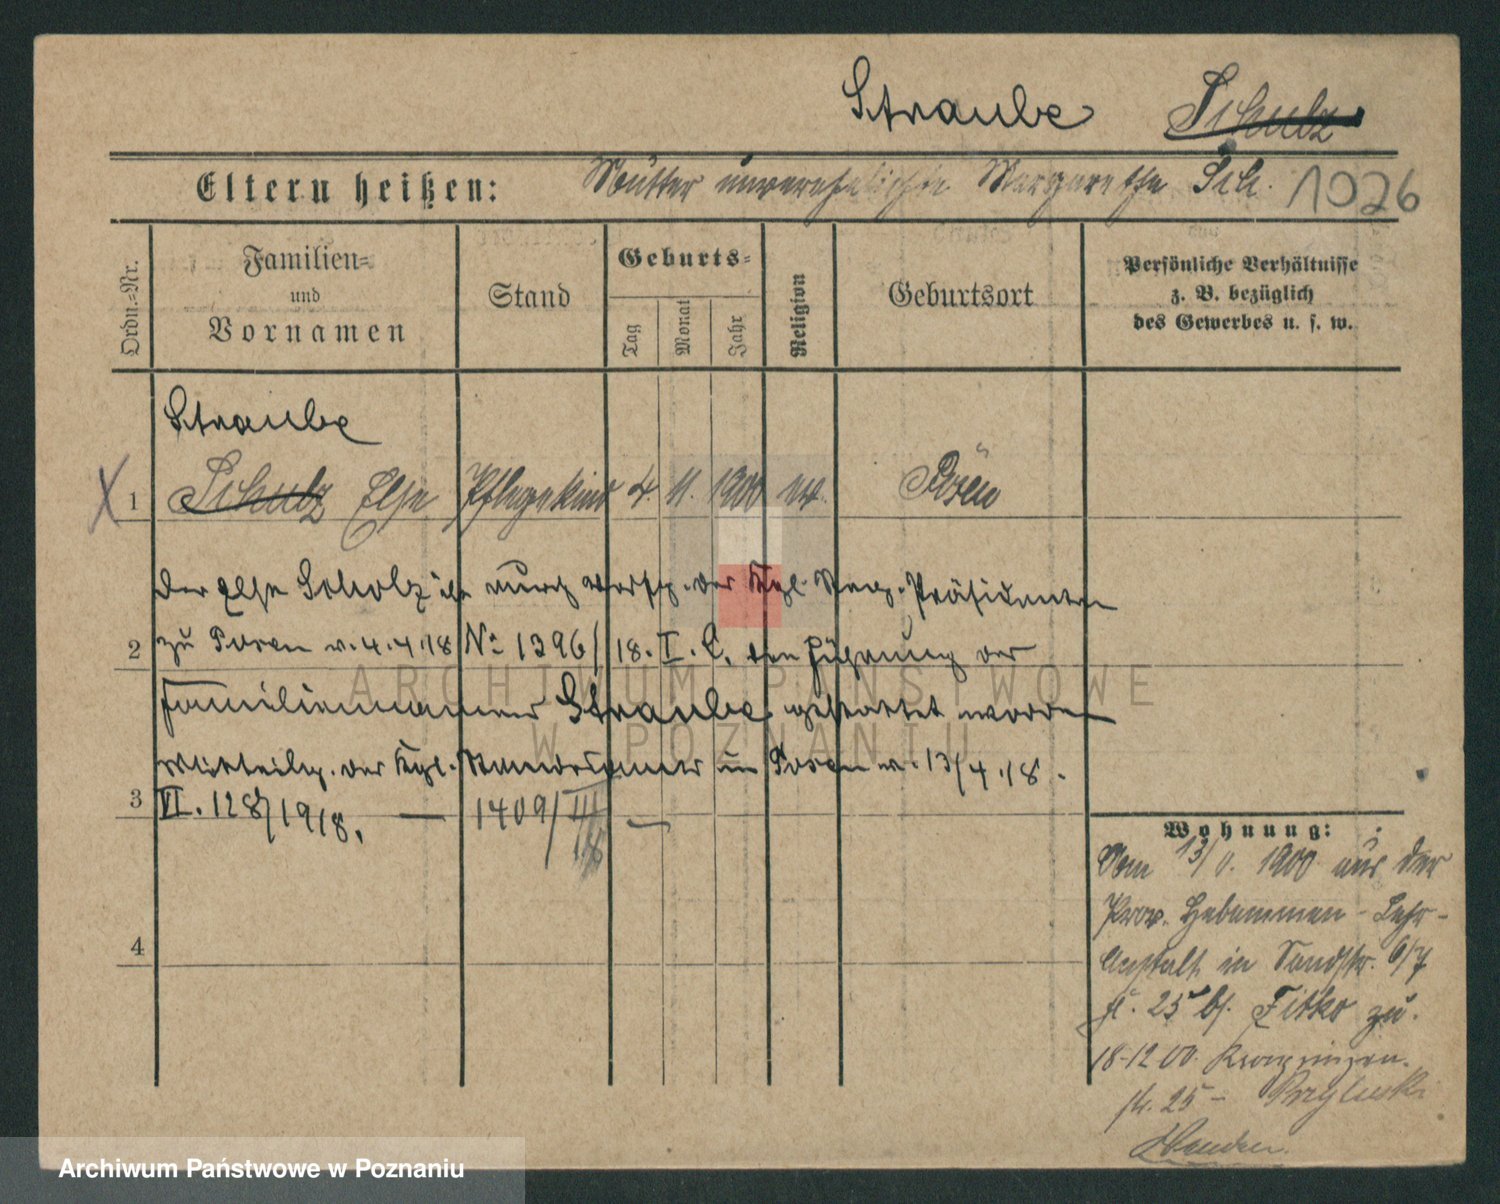 Straube Schulz
Eltern heißen: Mutter unverehelichte Margarethe Sch. 1026
Ordn.=Nr.
Familien=
und
Vornamen
Stand
Geburts=
Tag
Monat
Jahr
Religion
Geburtsort
Persönliche Verhältnisse
z. B. bezüglich
des Gewerbes u. s. w.
Straube
X 1 Schulz Else Pflegekind 4. 11. 1900 Posen
Der Else Scholz ist durch Verfg. der Kgl. Reg. Präsidenten
2 zu Posen v. 4.4.18 No 1396/18. I. C. den Führung der
Familiennamens Straube gestattet worden
Mitteilg. der Kgl. Standesamts in Posen v. 13/4.18.
3 VI. 128/1918. — 1409/III —
18
4
Wohnung:
Vom 13/11. 1900 aus der
Prov. Hebammen-Lehr-
Anstalt in Sandstr. 6/7
25 bei Fitko zu.
18-12 00 Kronprinzen-
str. 25 -
ARCHIWUM PAŃSTWOWE
W POZNANIU
Archiwum Państwowe w Poznaniu